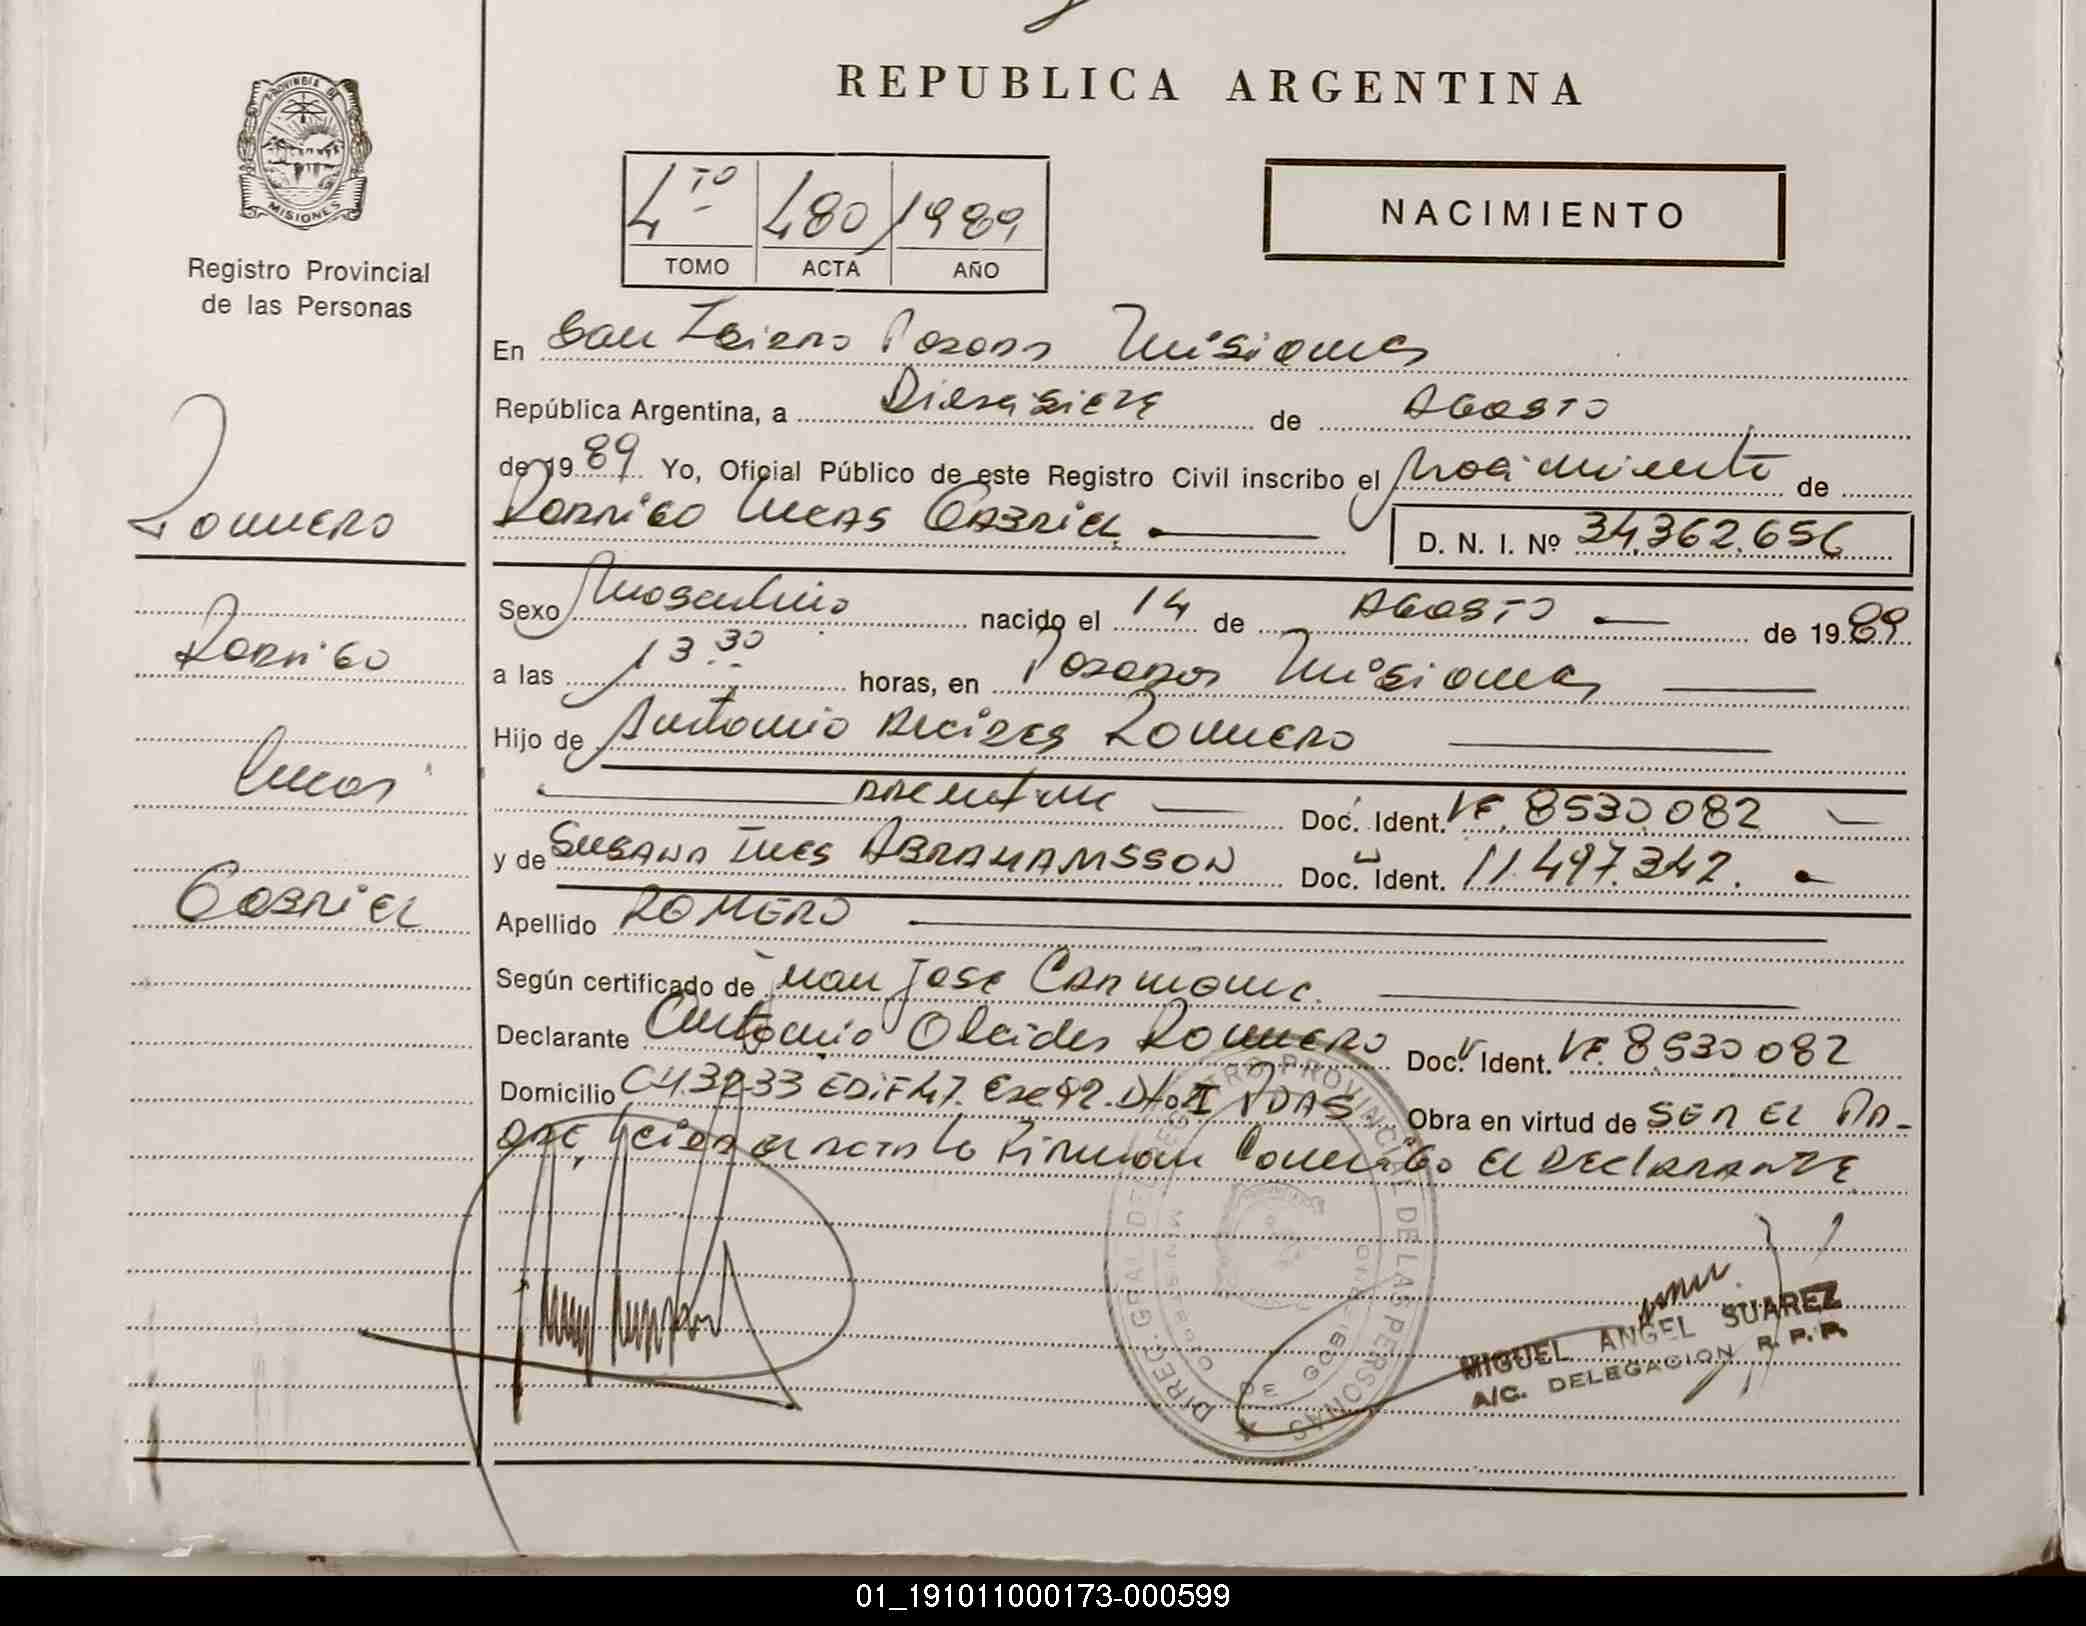 REPUBLICA ARGENTINA
PROVINCIA DE
MISIONES
Registro Provincial
de las Personas
4TO 480 1989
TOMO ACTA AÑO
NACIMIENTO
En San Isidro Posadas Misiones
República Argentina, a Diesisiete de Agosto
de 1989 Yo, Oficial Público de este Registro Civil inscribo el Nacimiento de
Romero
Rodrigo Lucas Gabriel
D. N. I. Nº 34.362.656
Sexo Masculino nacido el 14 de Agosto de 1989
Rodrigo
a las 13.30 horas, en Posadas Misiones
Hijo de Antonio Alcides Romero
Lucas
Argentino Doc. Ident. 8530.082
y de Susana Ines ABRAHAMSSON Doc. Ident. 11.497.342.
Gabriel
Apellido ROMERO
Según certificado de Juan Jose Carmona
Declarante Antonio Alcides Romero Doc. Ident. 8.530.082
Domicilio CH.32-33 EDIF 47. Esc 92. Dto I PDAS. Obra en virtud de SER EL PA-
DRE, Leida el acta la Firman Conmigo el DEClARANTE
DIREC. GRAL DEL REGISTRO PROVINCIAL DE LAS PERSONAS
MIGUEL ANGEL SUAREZ
A/C. DELEGACION R. P. P.
01_191011000173-000599